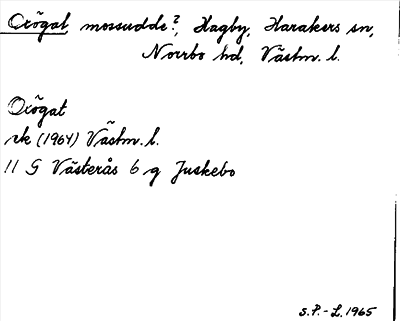 Oxögat, mossudde?, Hagby, Harakers sn,
Norrbo hd, Västm. l.
Oxögat
rk (1964) Västm. l.
11 G Västerås 6 g Juskebo
S.P.-L. 1965